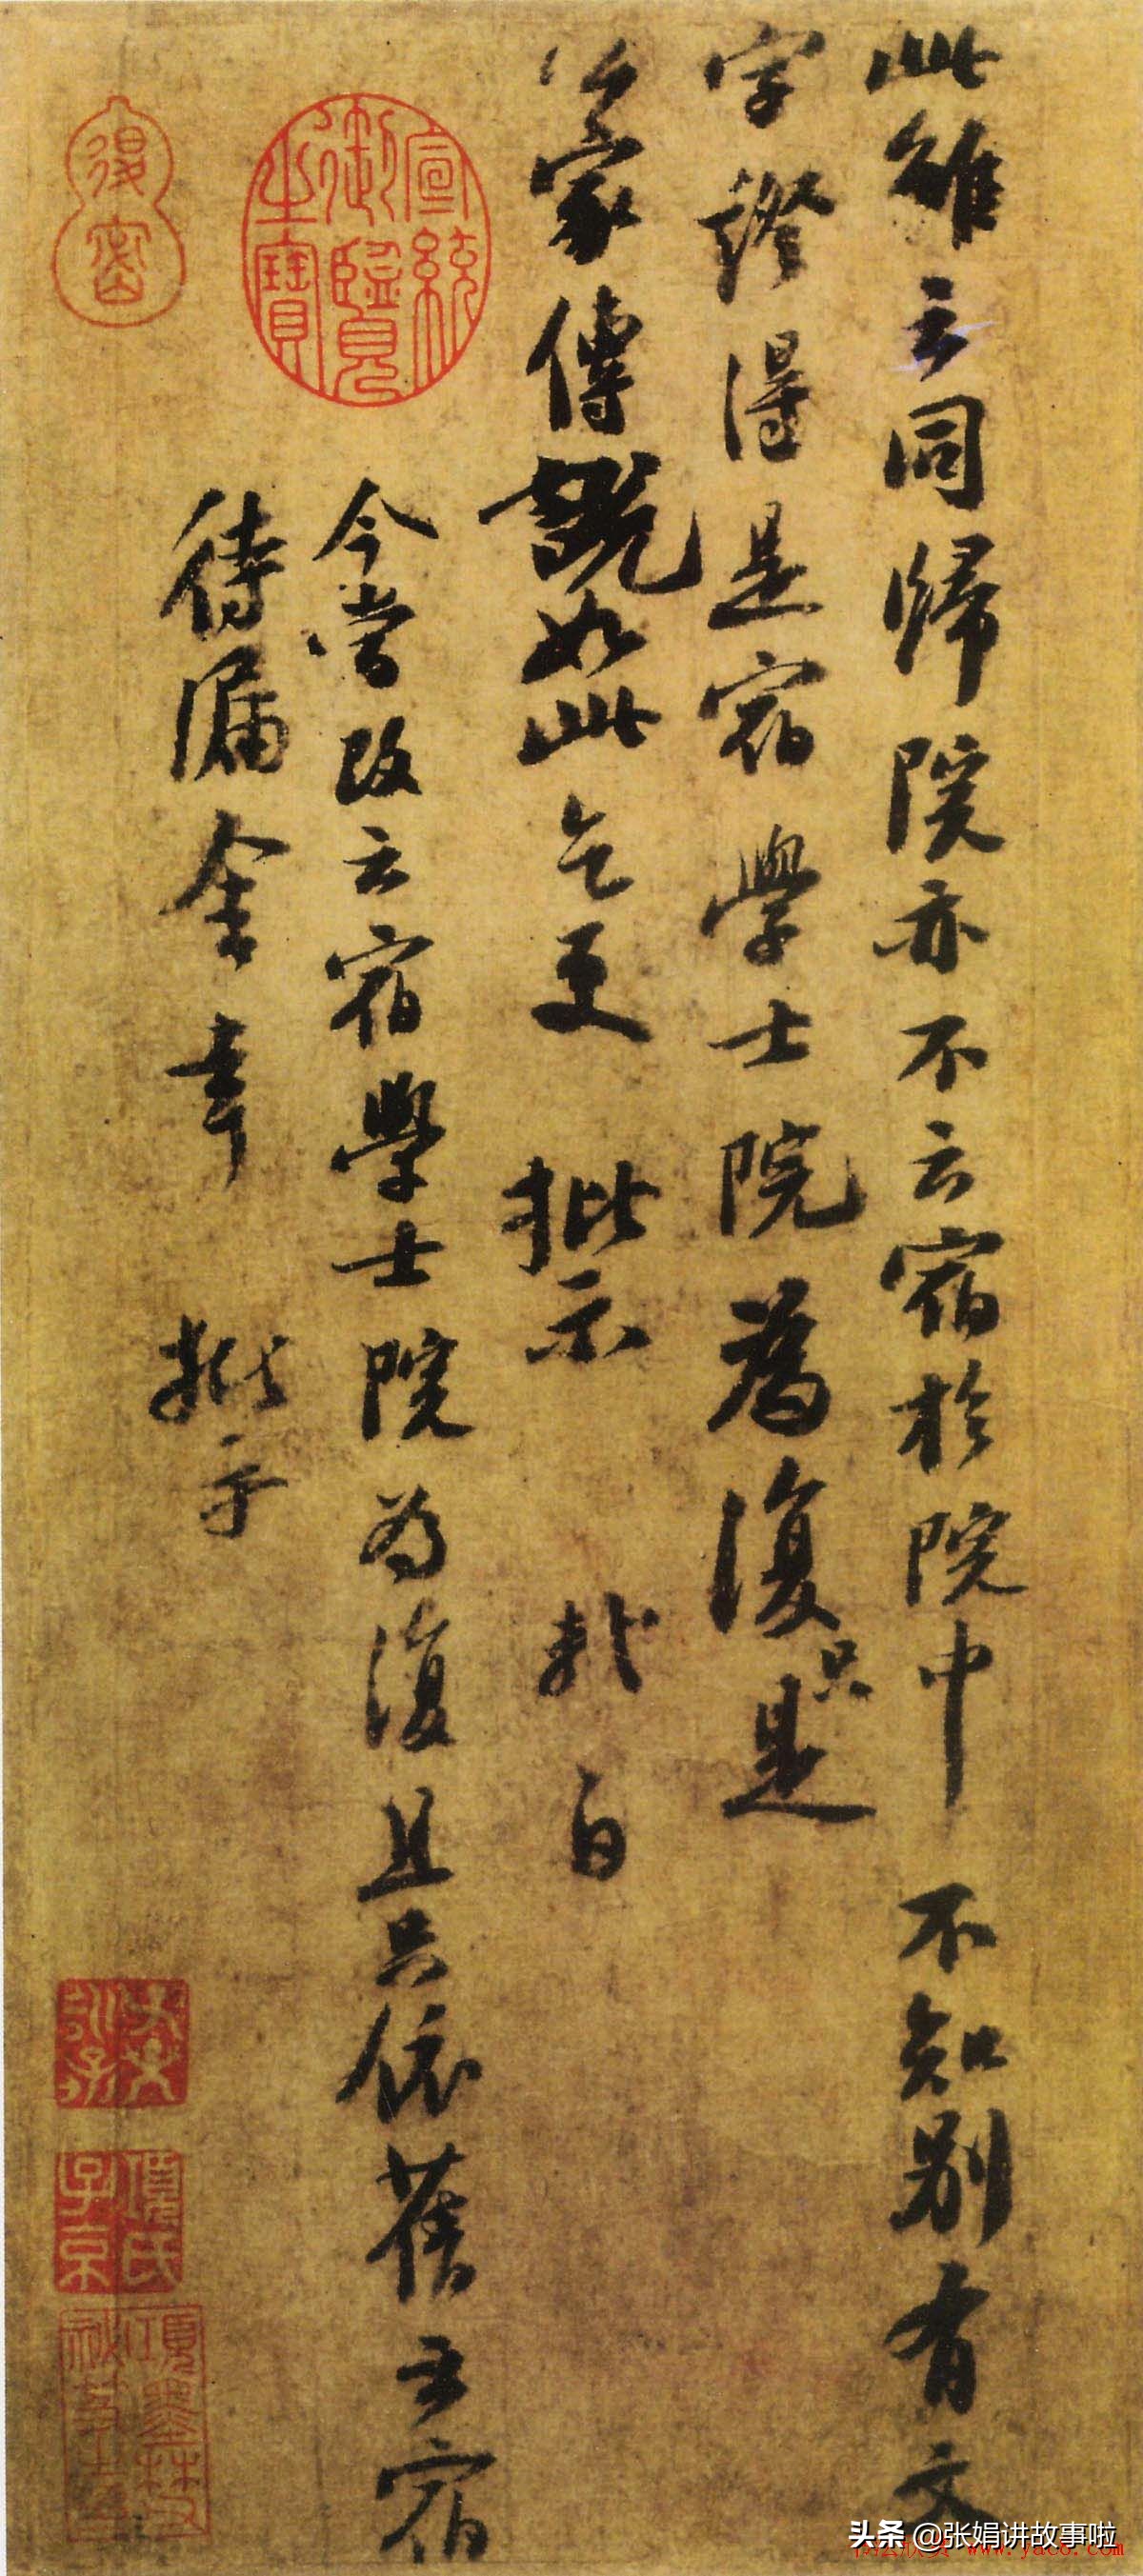 此雖云同歸院亦不云宿於院中 不知别有文
字證得是宿學士院為復只是
公家傳説如此乞更 批示 軾白
今嘗改云宿學士院為復且只依舊云宿
待漏舍幸 批示
宣統
御覽
之寶
項氏
子京
头条 @张娟讲故事啦
www.yac8.com